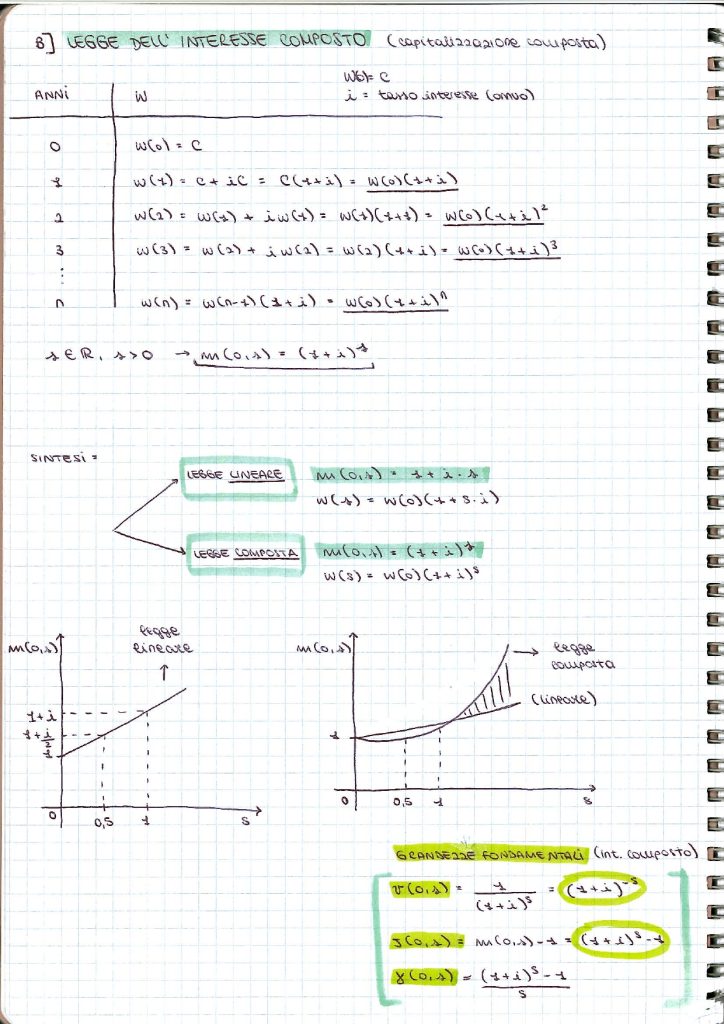 B] LEGGE DELL'INTERESSE COMPOSTO (capitalizzazione composta)
W(0) = C
ANNI W i = tasso interesse (annuo)
0 W(0) = C
1 W(1) = C + iC = C(1+i) = W(0)(1+i)
2 W(2) = W(1) + iW(1) = W(1)(1+1) = W(0)(1+i)²
3 W(3) = W(2) + iW(2) = W(2)(1+i) = W(0)(1+i)³
⋮
n W(n) = W(n-1)(1+i) = W(0)(1+i)ⁿ
s ∈ ℝ, s>0 → m(0,s) = (1+i)ˢ
SINTESI =
LEGGE LINEARE m(0,s) = 1 + i · s
W(s) = W(0)(1+s·i)
LEGGE COMPOSTA m(0,s) = (1+i)ˢ
W(s) = W(0)(1+i)ˢ
m(0,s)
legge
lineare
1+i
1+i/2
1
0 0,5 1 s
m(0,s)
legge
composta
(lineare)
1
0 0,5 1 s
GRANDEZZE FONDAMENTALI (int. composto)
v(0,s) = 1/(1+i)ˢ = (1+i)⁻ˢ
J(0,s) = m(0,s)-1 = (1+i)ˢ-1
γ(0,s) = (1+i)ˢ-1/s